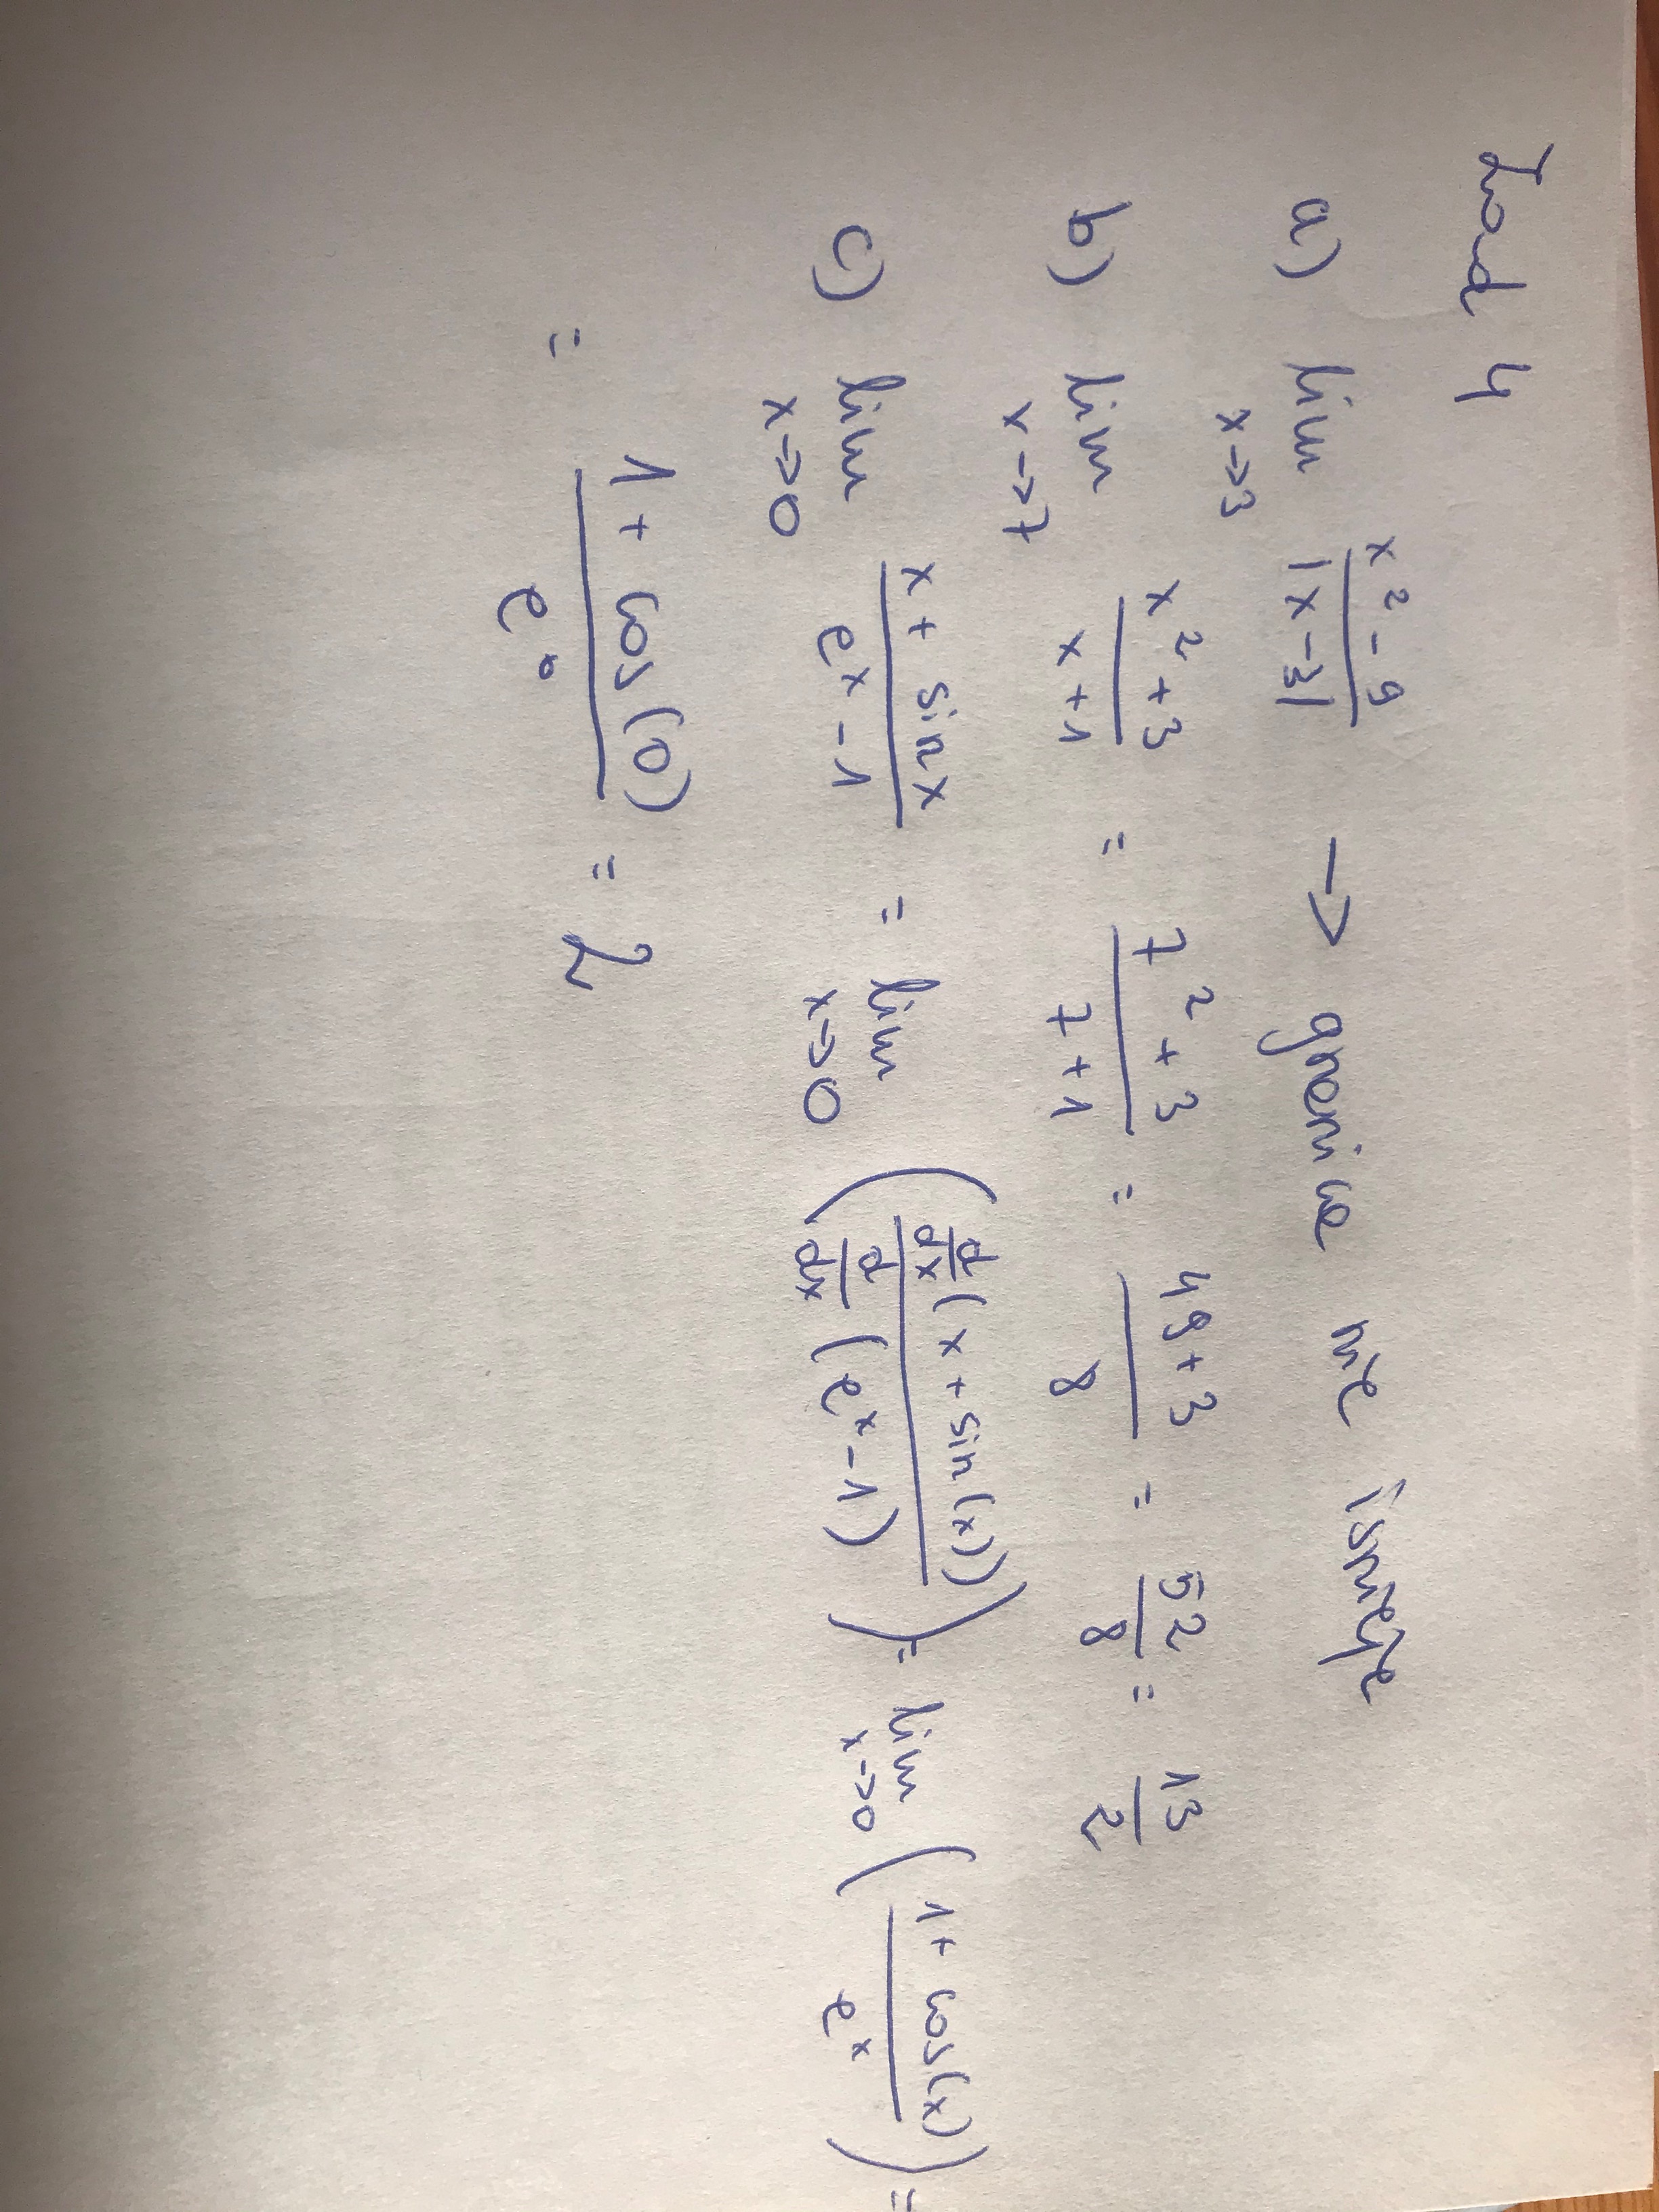 Zad 4
a) lim x→3 x² - 9 / |x - 3| → granica nie istnieje
b) lim x→7 x² + 3 / x + 1 = 7² + 3 / 7 + 1 = 49 + 3 / 8 = 52 / 8 = 13 / 2
c) lim x→0 x + sin x / eˣ - 1 = lim x→0 ( d/dx (x + sin(x)) / d/dx (eˣ - 1) ) = lim x→0 ( 1 + cos(x) / eˣ ) =
= 1 + cos(0) / e⁰ = 2